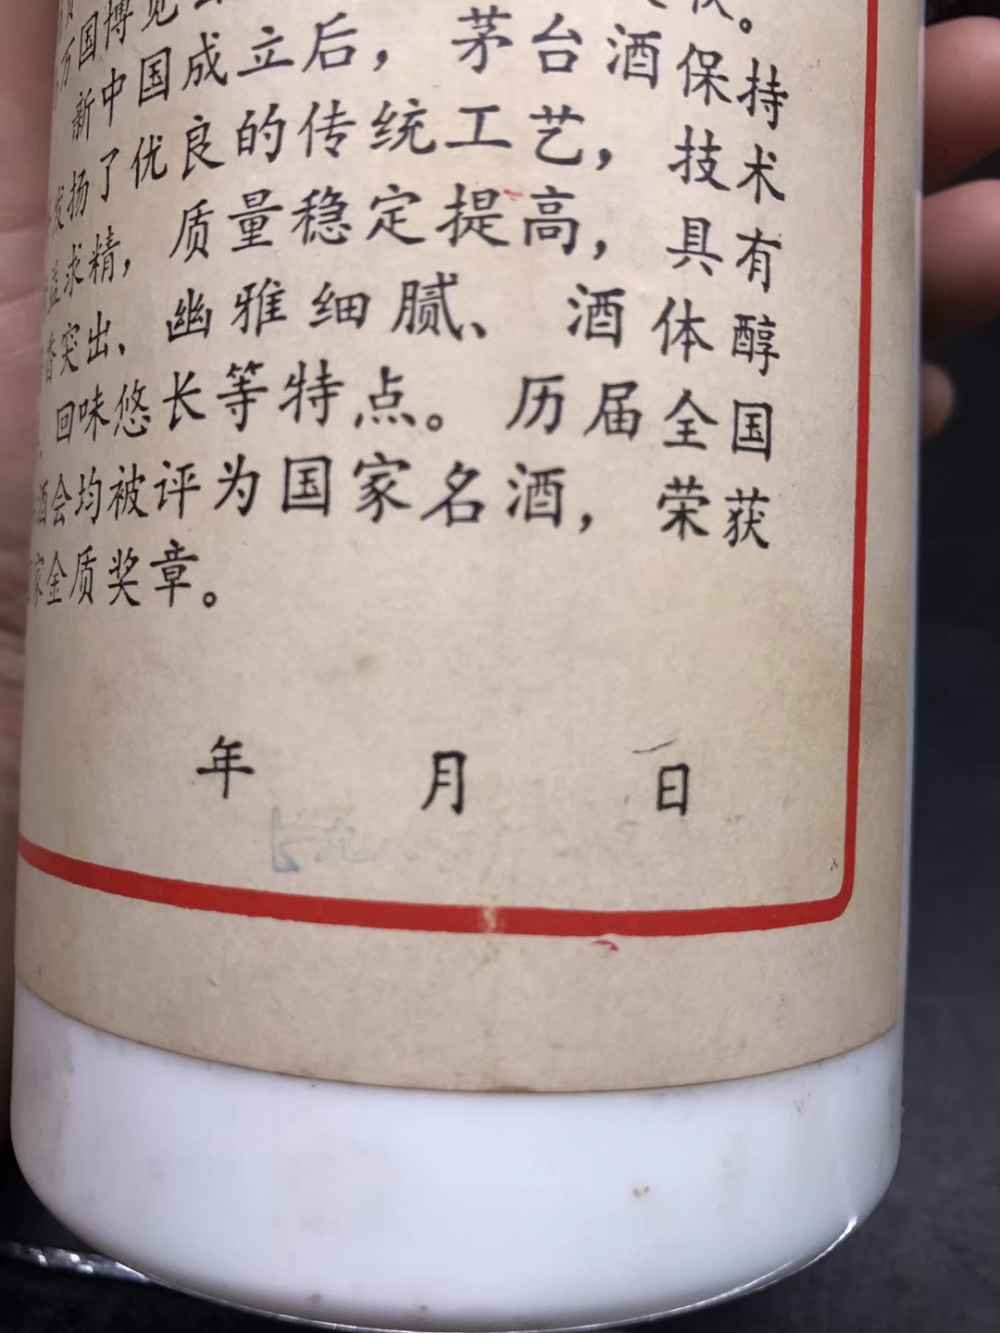 万国博览
新中国成立后，茅台酒保持
发扬了优良的传统工艺，技术
益求精，质量稳定提高，具有
香突出、幽雅细腻、酒体醇
回味悠长等特点。历届全国
酒会均被评为国家名酒，荣获
家金质奖章。
年 月 日